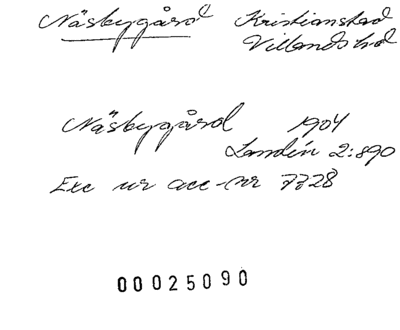 Näsbygård Kristianstad
Villands hd
Näsbygård 1904
Landén 2:890
Exc ur acc-nr 7728
00025090